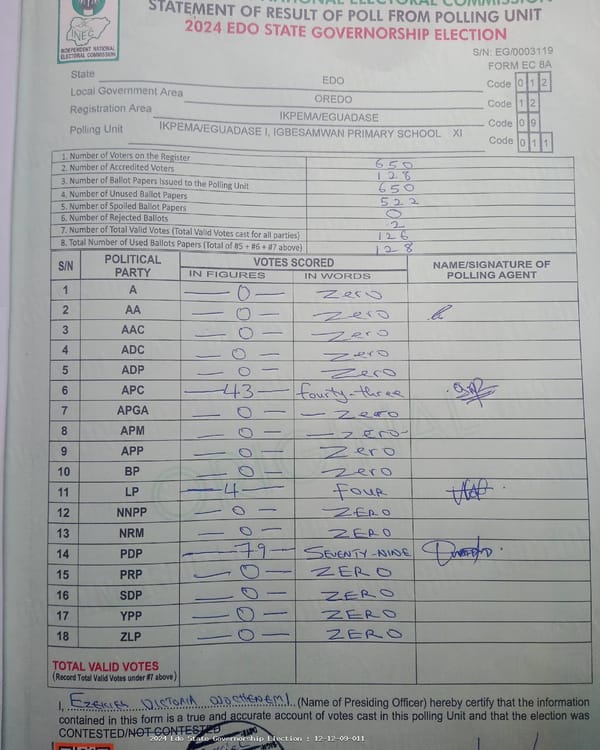 INEC
INDEPENDENT NATIONAL ELECTORAL COMMISSION
STATEMENT OF RESULT OF POLL FROM POLLING UNIT
2024 EDO STATE GOVERNORSHIP ELECTION
S/N: EG/0003119
FORM EC 8A
State EDO Code 0 1 2
Local Government Area OREDO Code 1 2
Registration Area IKPEMA/EGUADASE Code 0 9
Polling Unit IKPEMA/EGUADASE I, IGBESAMWAN PRIMARY SCHOOL XI Code 0 1 1
1. Number of Voters on the Register 650
2. Number of Accredited Voters 128
3. Number of Ballot Papers Issued to the Polling Unit 650
4. Number of Unused Ballot Papers 522
5. Number of Spoiled Ballot Papers 0
6. Number of Rejected Ballots 2
7. Number of Total Valid Votes (Total Valid Votes cast for all parties) 126
8. Total Number of Used Ballots Papers (Total of #5 + #6 + #7 above) 128
S/N POLITICAL PARTY VOTES SCORED NAME/SIGNATURE OF POLLING AGENT
IN FIGURES IN WORDS
1 A — 0 — Zero
2 AA — 0 — Zero
3 AAC — 0 — Zero
4 ADC — 0 — Zero
5 ADP — 0 — Zero
6 APC — 43 — fourty-three
7 APGA — 0 — — Zero
8 APM — 0 — — zero-
9 APP — 0 — Zero
10 BP — 0 — Zero
11 LP — 4 — FOUR
12 NNPP — 0 — ZERO
13 NRM — 0 — ZERO
14 PDP — 79 — SEVENTY-NINE
15 PRP — 0 — ZERO
16 SDP — 0 — ZERO
17 YPP — 0 — ZERO
18 ZLP — 0 — ZERO
TOTAL VALID VOTES
(Record Total Valid Votes under #7 above)
I, EZEKIEL VICTORIA (Name of Presiding Officer) hereby certify that the information
contained in this form is a true and accurate account of votes cast in this polling Unit and that the election was
CONTESTED/NOT CONTESTED
2024 Edo State Governorship Election : 12-12-09-011